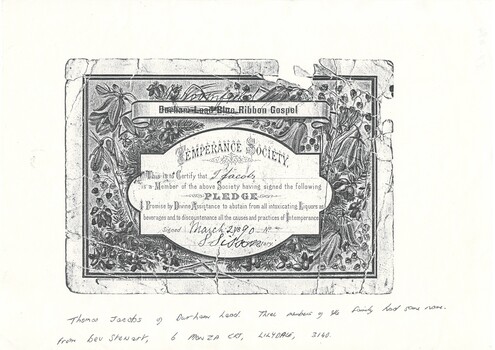 Durham Lead Blue Ribbon Gospel
TEMPERANCE SOCIETY.
This is to Certify that T Jacobs
is a Member of the above Society having signed the following
PLEDGE
I Promise by Divine Assistance to abstain from all intoxicating Liquors as
beverages and to discountenance all the causes and practices of Intemperance
Signed March 2 1890 No
Thomas Jacobs of Durham Lead. Three members of the family had same name.
from Bev Stewart, 6 MONZA CRT, LILYDALE, 3140.